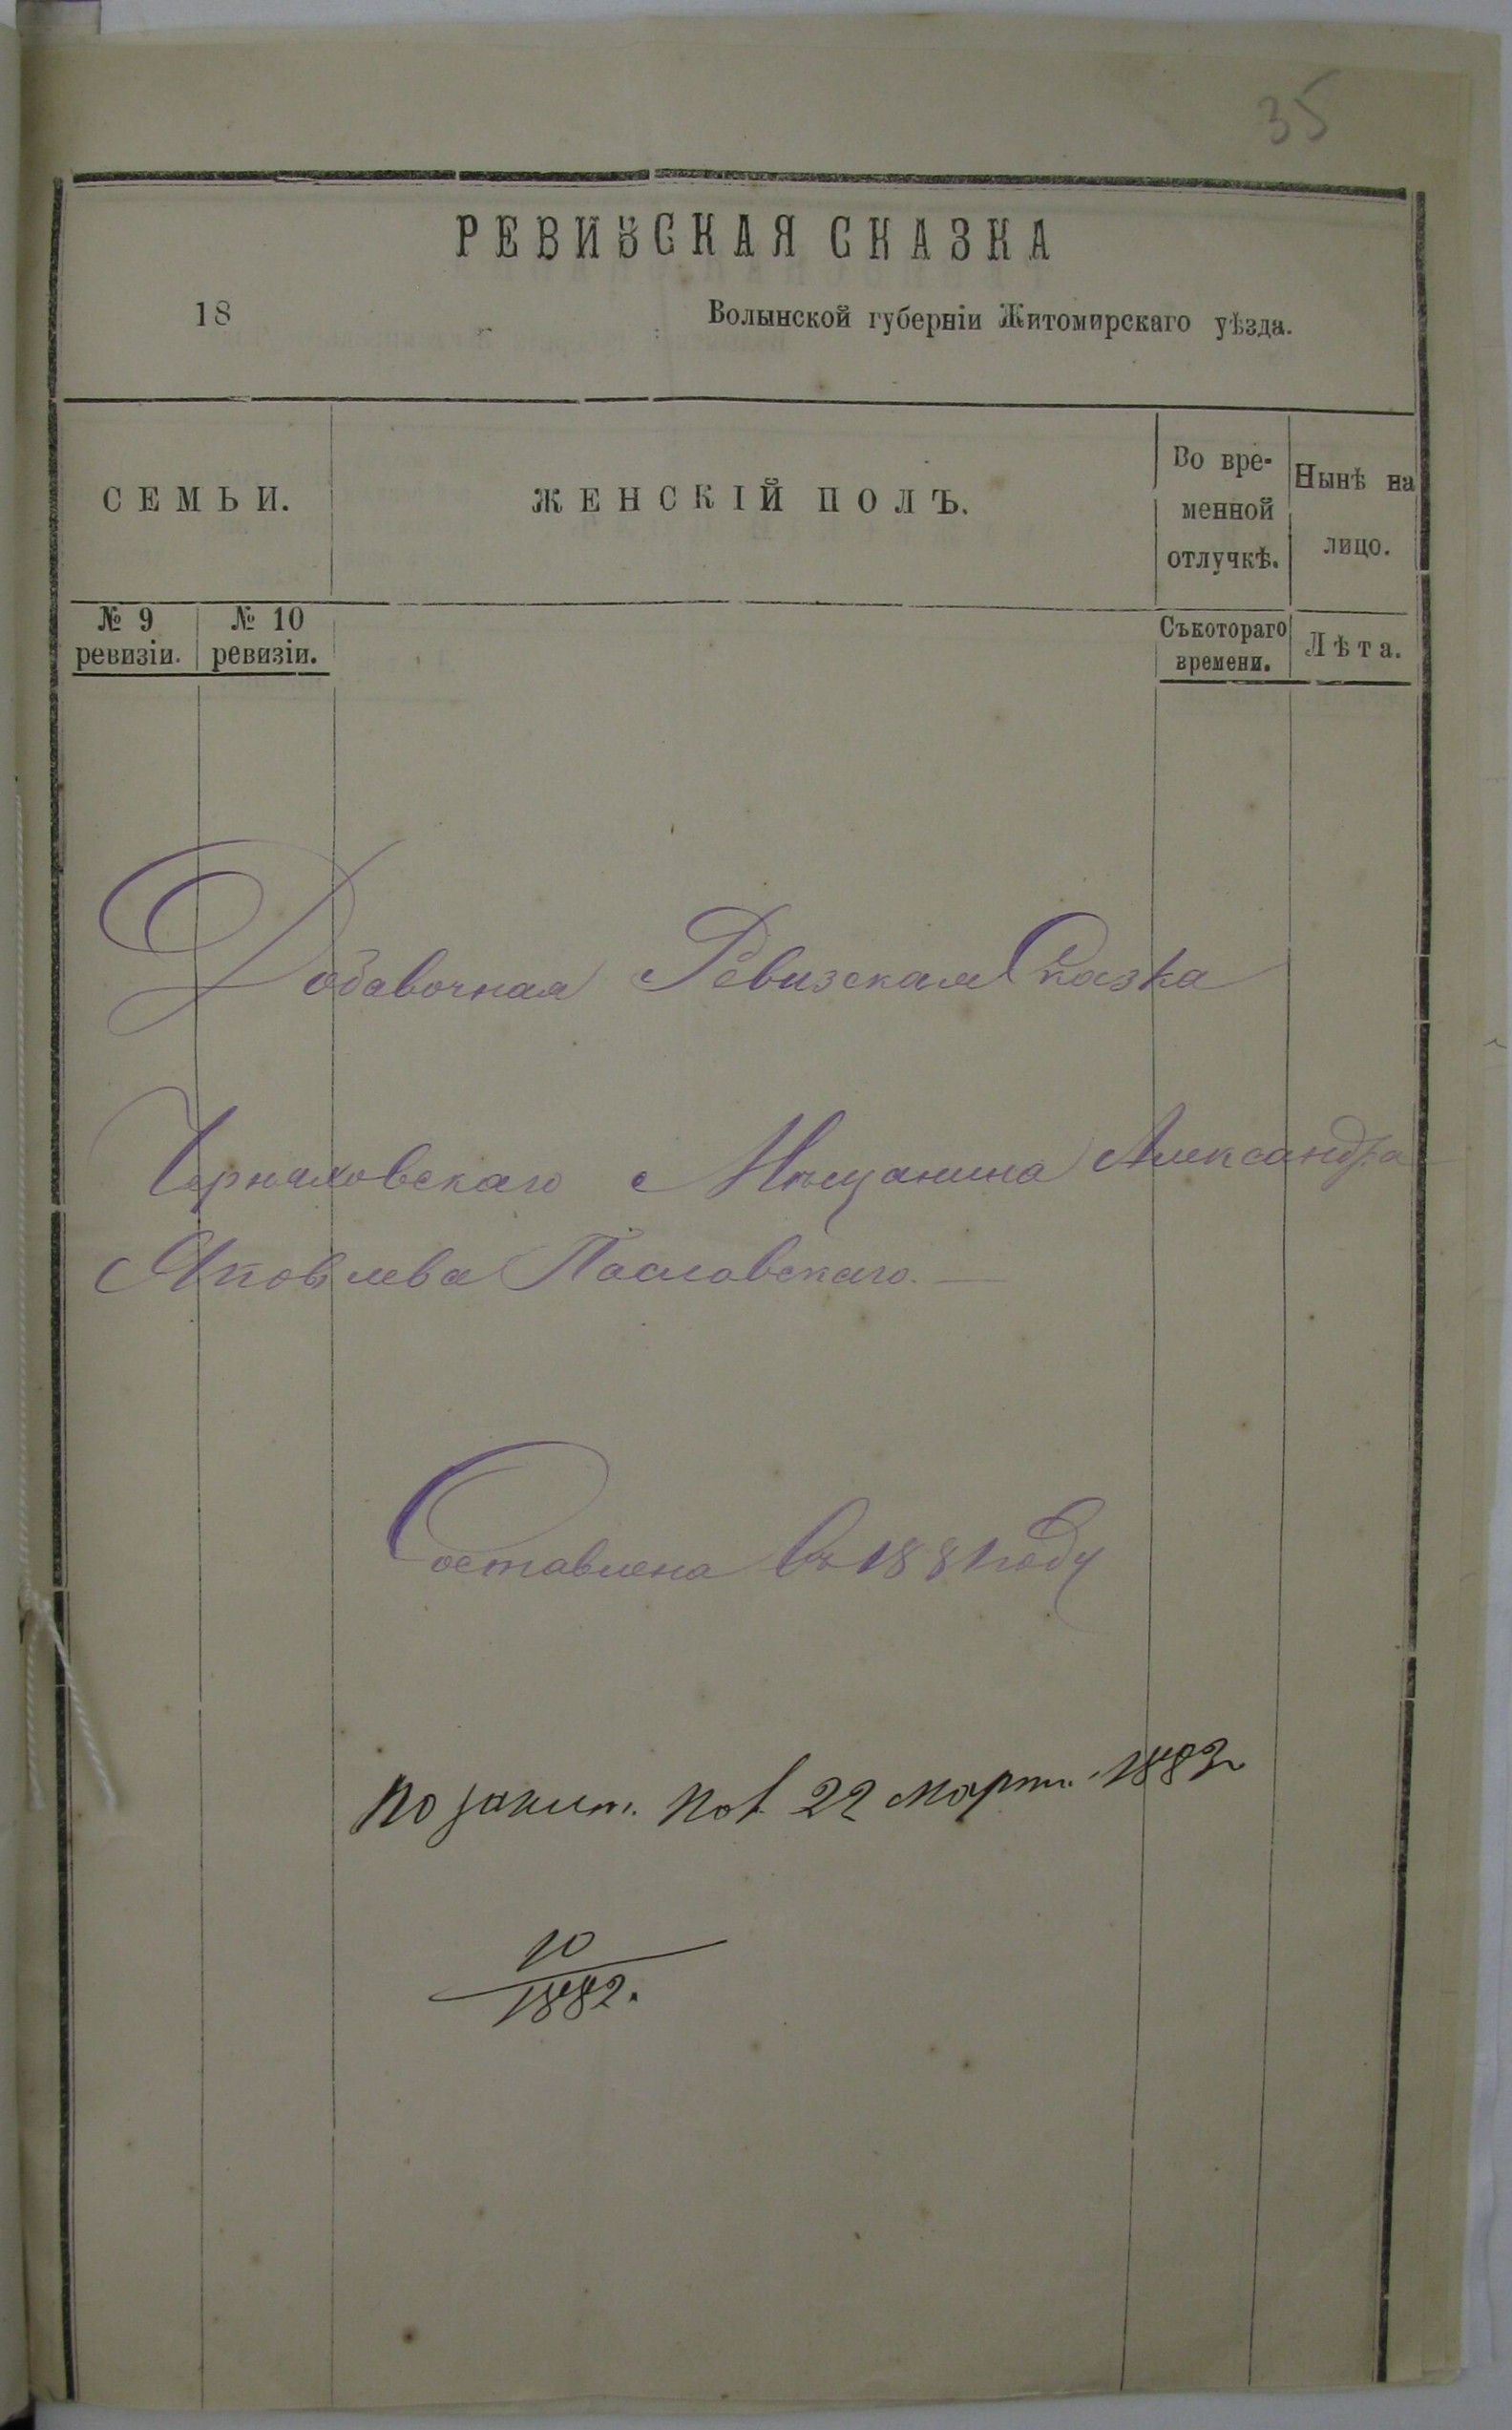 35
РЕВИЗСКАЯ СКАЗКА
18 Волынской губерніи Житомирскаго уѣзда.
СЕМЬИ. ЖЕНСКІЙ ПОЛЪ. Во вре-менной отлучкѣ. Нынѣ на лицо.
№ 9 ревизіи. № 10 ревизіи. Съкотораго времени. Лѣта.
Добавочная Ревизская Сказка
Черняховскаго Мѣщанина Александра
Яковлева Пасловскаго.
Составлена въ 1881 году
По 22 март. 188
10
1882.